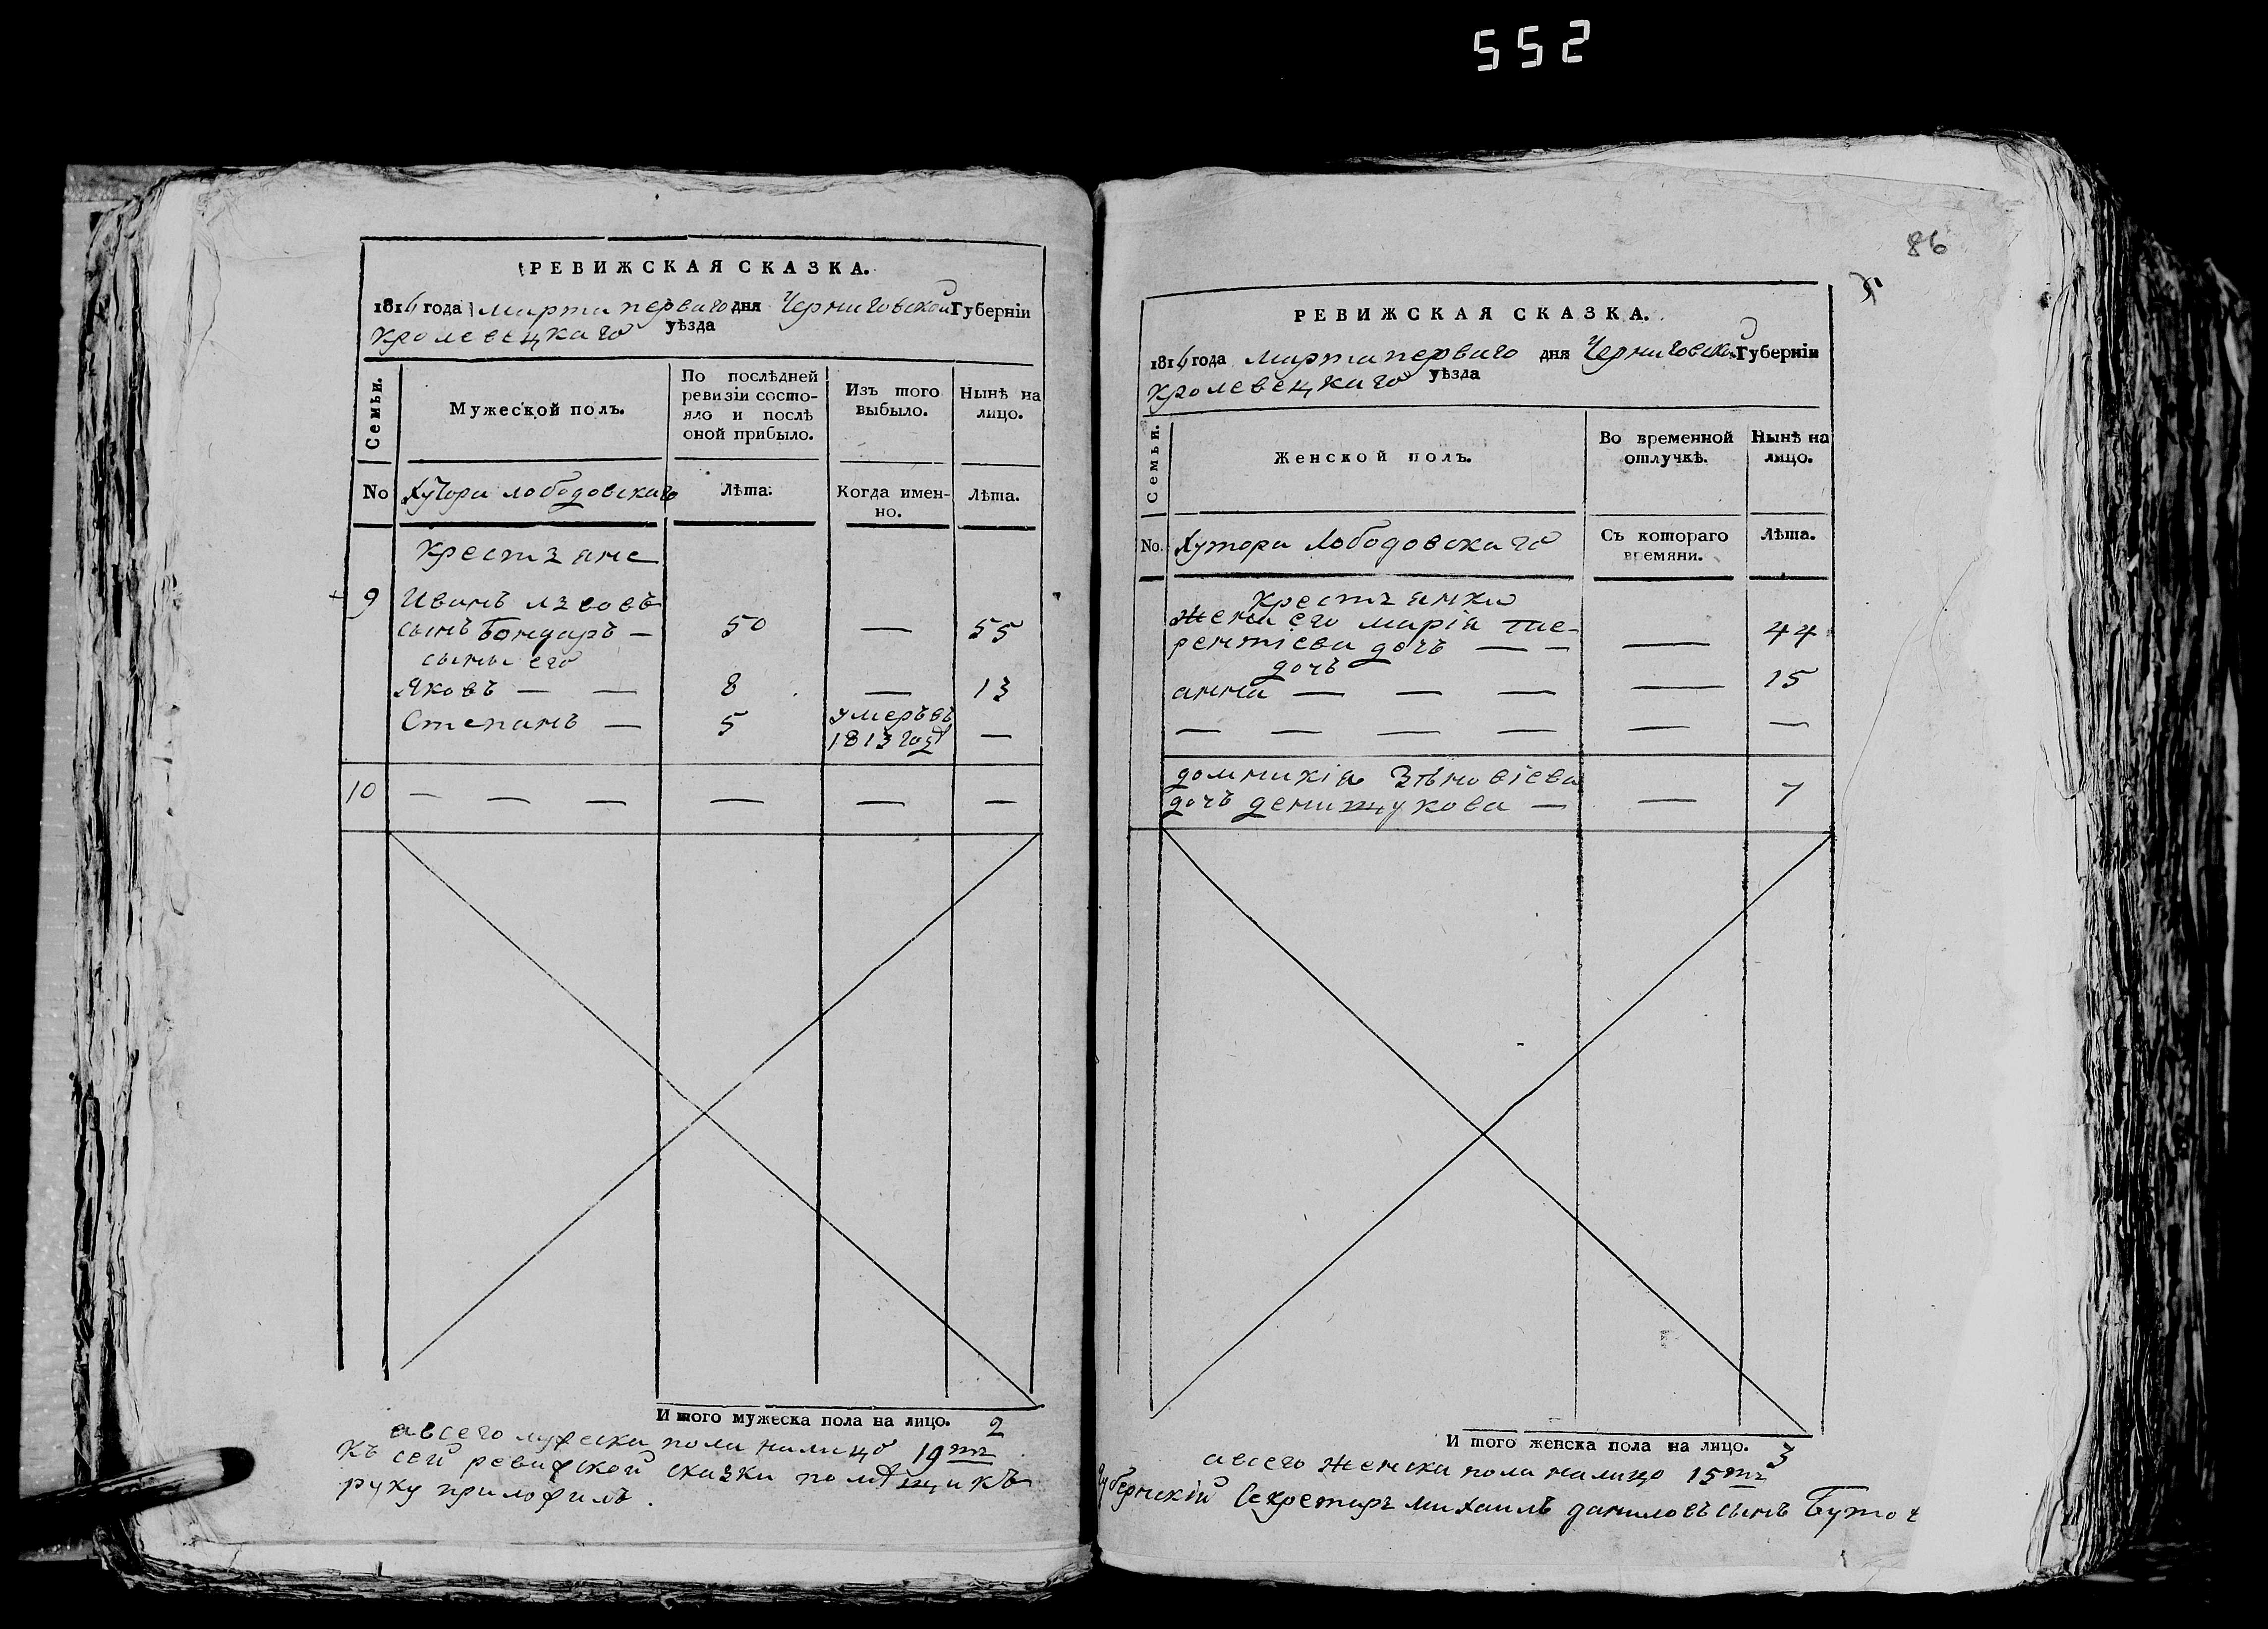 552
РЕВИЖСКАЯ СКАЗКА.
1816 года марта перваго дня Черниговской Губерніи
Кролевецкаго уѣзда
Семьи.
Мужеской полъ.
По послѣдней
ревизіи состо-
яло и послѣ
оной прибыло.
Изъ того
выбыло.
Нынѣ на
лицо.
No Хутора Лободовскаго
Лѣта.
Когда имен-
но.
Лѣта.
Крестьяне
9 Иванъ Львовъ
сынъ Бондаръ — 50 — 55
сыны его
Яковъ — — 8 — 13
Степанъ — 5 умеръ въ
1813 год —
10 — — — — — —
И того мужеска пола на лицо. 2
а всего мужеска пола налицо 19ть
Къ сей ревижской сказки помѣщикъ
руку приложилъ.
86
РЕВИЖСКАЯ СКАЗКА.
1816 года марта перваго дня Черниговской Губерніи
Кролевецкаго уѣзда
Семьи.
Женской полъ.
Во временной
отлучкѣ.
Нынѣ на
лицо.
No. Хутора Лободовскаго
Съ котораго
времяни.
Лѣта.
Крестьянки
Жена его марія
рентіева дочь — — — 44
дочь
анна — — — — 15
— — — — — —
домникія Зѣновіева
дочь денищукова — — 7
И того женска пола на лицо. 3
а всего женска пола налицо 15ть
Губернскій Секретарь михаилъ даниловъ сынъ